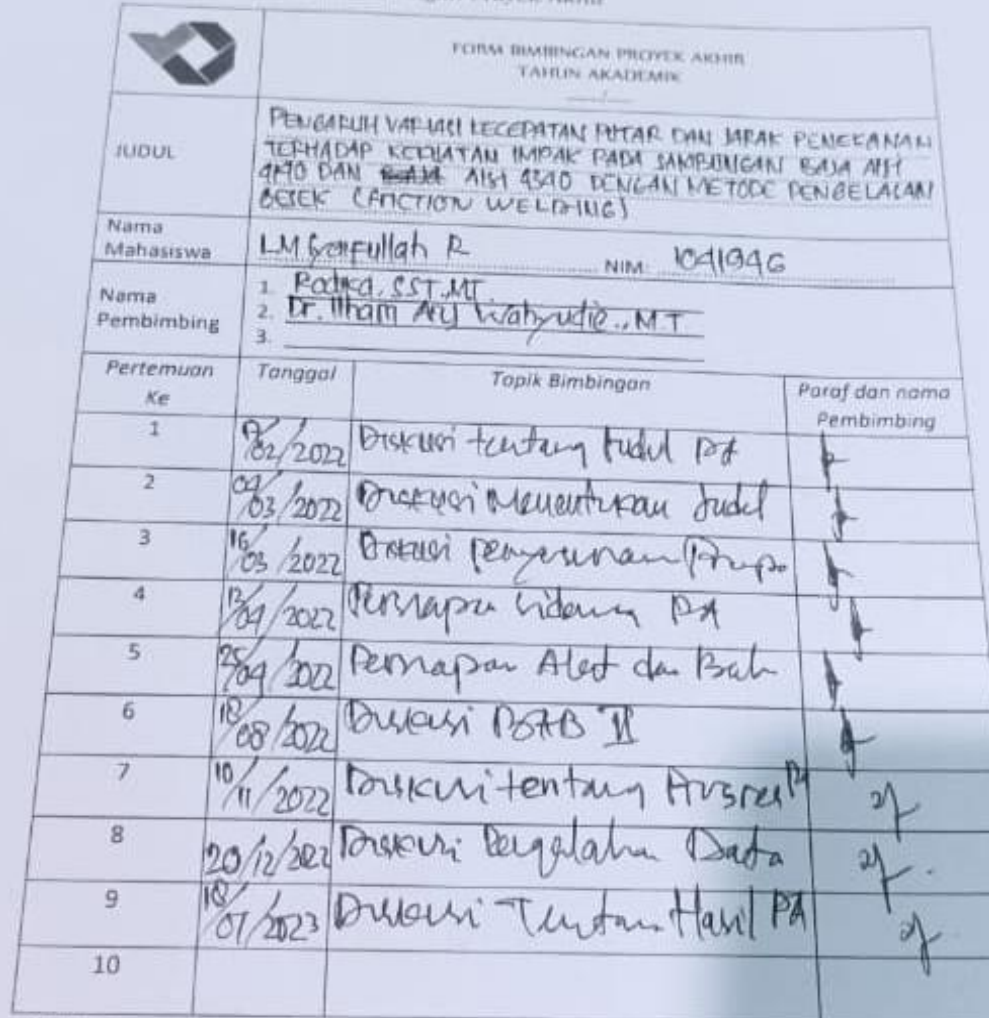 FORM BIMBINGAN PROYEK AKHIR
TAHUN AKADEMIK
JUDUL
PENGARUH VARIASI KECEPATAN PUTAR DAN JARAK PENEKANAN
TERHADAP KEKUATAN IMPAK PADA SAMBUNGAN BAJA AISI
DAN AISI 4340 DENGAN METODE PENGELASAN
GESEK (FRICTION WELDING)
Nama Mahasiswa
LM Syaifullah R NIM: 1041946
Nama Pembimbing
1. Rodika, SST., MT.
2. Dr. Ilham Ary Wahyudie., M.T.
3.
Pertemuan Ke Tanggal Topik Bimbingan Paraf dan nama Pembimbing
1 /02/2022 Diskusi tentang Judul PA
2 09/03/2022 Diskusi Menentukan Judul
3 16/03/2022 Diskusi Penyusunan
4 12/04/2022 sidang PA
5 25/04/2022 Persiapan Alat dan
6 18/08/2022 Diskusi BAB II
7 10/11/2022 Diskusi tentang
8 20/12/2022 Diskusi Data
9 18/07/2023 Diskusi Hasil PA
10